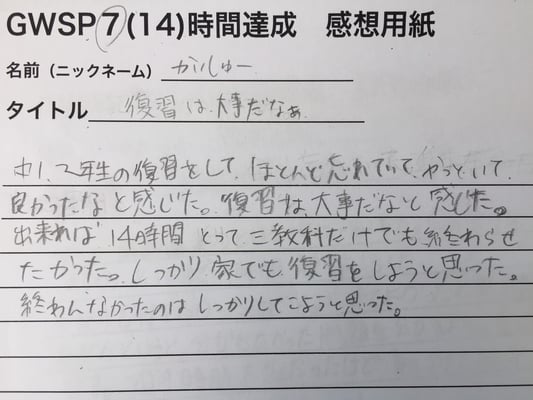 GWSP7(14)時間達成 感想用紙
名前(ニックネーム) がいしゅー
タイトル 復習は、大事だなぁ
中1、2年生の復習をして、ほとんど忘れていて、やっといて、
良かったなと感じた。復習は、大事だなと感じた。
出来れば、14時間とって、三教科だけでも終わらせ
たかった。しっかり家でも、復習をしようと思った。
終わんなかったのはしっかりしてこようと思った。